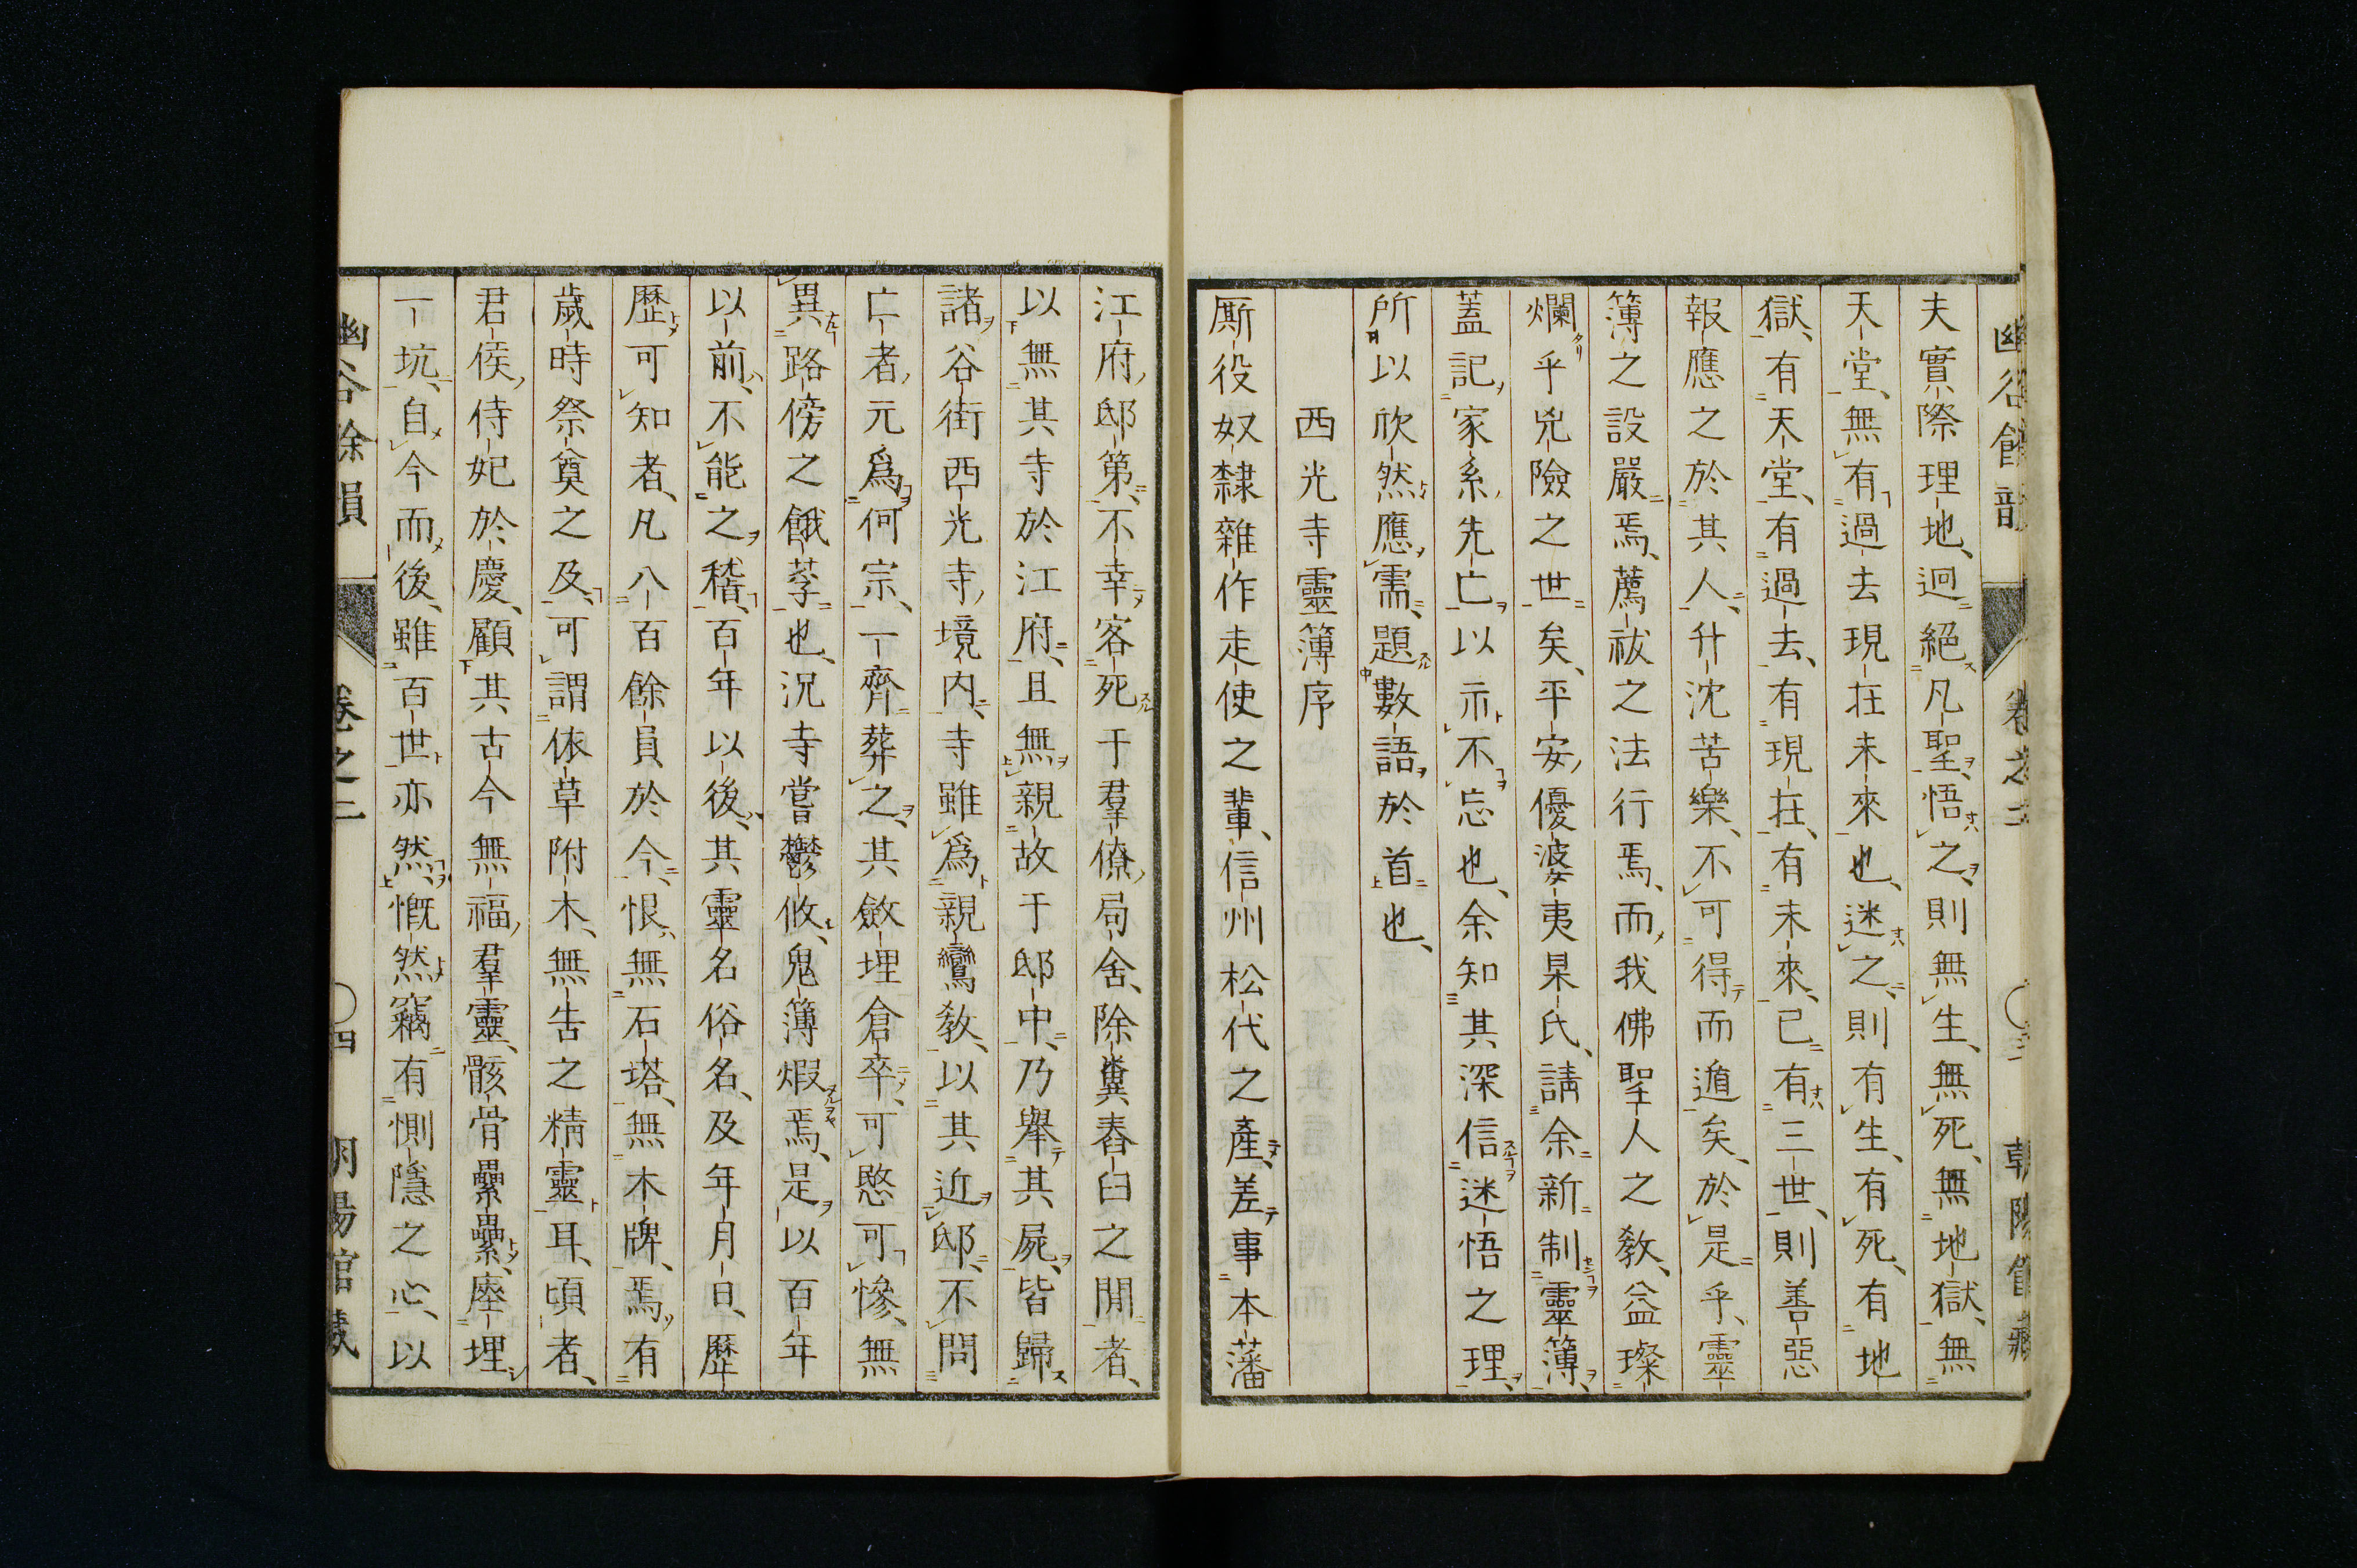 幽谷餘韻 卷之二 〇三 朝陽館藏
夫實際理地、迥絕凡聖、悟之、則無生、無死、無地獄、無
天堂、無有過去現在未來也、迷之、則有生、有死、有地
獄、有天堂、有過去、有現在、有未來、已有三世、則善惡
報應之於其人、升沈苦樂、不可得而遁矣、於是乎、靈
簿之設嚴焉、薦祓之法行焉、而我佛聖人之敎、益璨
爛乎兇險之世矣、平安優婆夷杲氏、請余新制靈簿、
蓋記家系先亡以示不忘也、余知其深信迷悟之理、
所以欣然應需題數語於首也、
西光寺靈簿序
厮役奴隸雜作走使之輩、信州松代之產、差事本藩
江府邸第、不幸客死于羣僚局舍、除糞舂臼之間者、
以無其寺於江府、且無親故于邸中、乃舉其屍、皆歸
諸谷街西光寺境內、寺雖爲親鸞敎、以其近邸、不問
亡者元爲何宗、一齊葬之、其斂埋倉卒、可愍可慘、無
異路傍之餓莩也、況寺嘗鬱攸、鬼簿煆焉、是以百年
以前、不能之稽、百年以後、其靈名俗名、及年月日、歷
歷可知者、凡八百餘員於今、恨無石塔、無木牌、焉有
歲時祭奠之及、可謂依草附木、無告之精靈耳、頃者、
君侯侍妃於慶、顧其古今無福羣靈、骸骨纍纍、座埋
一坑、自今而後、雖百世亦然、慨然竊有惻隱之心、以
幽谷餘韻 卷之二 〇四 朝陽館藏